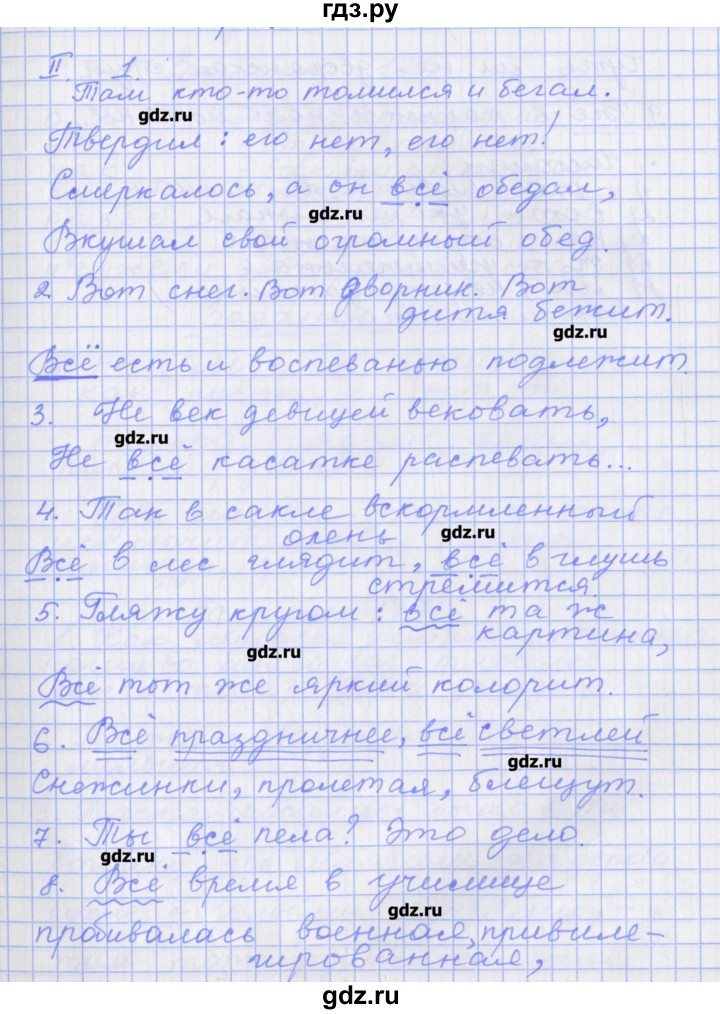 гдз.ру
II. 1.
Там кто-то томился и бегал.
gdz.ru
Твердил: его нет, его нет!
Смеркалось, а он всё обедал,
gdz.ru
Вкушал свой огромный обед.
2. Вот снег. Вот дворник. Вот
дитя бежит.
gdz.ru
Всё есть и воспеванью подлежит.
3. Не век девицей вековать,
gdz.ru
Не всё касатке распевать...
4. Так в сакле вскормленный
олень
gdz.ru
Всё в лес глядит, всё в глушь
стремится.
5. Гляжу кругом: всё та ж
картина,
gdz.ru
Всё тот же яркий колорит.
6. Всё праздничнее, всё светлей
gdz.ru
Снежинки, пролетая, блещут.
7. Ты всё пела? Это дело.
gdz.ru
8. Всё время в училище
gdz.ru
пробивалась военная, привиле-
гированная,
gdz.ru